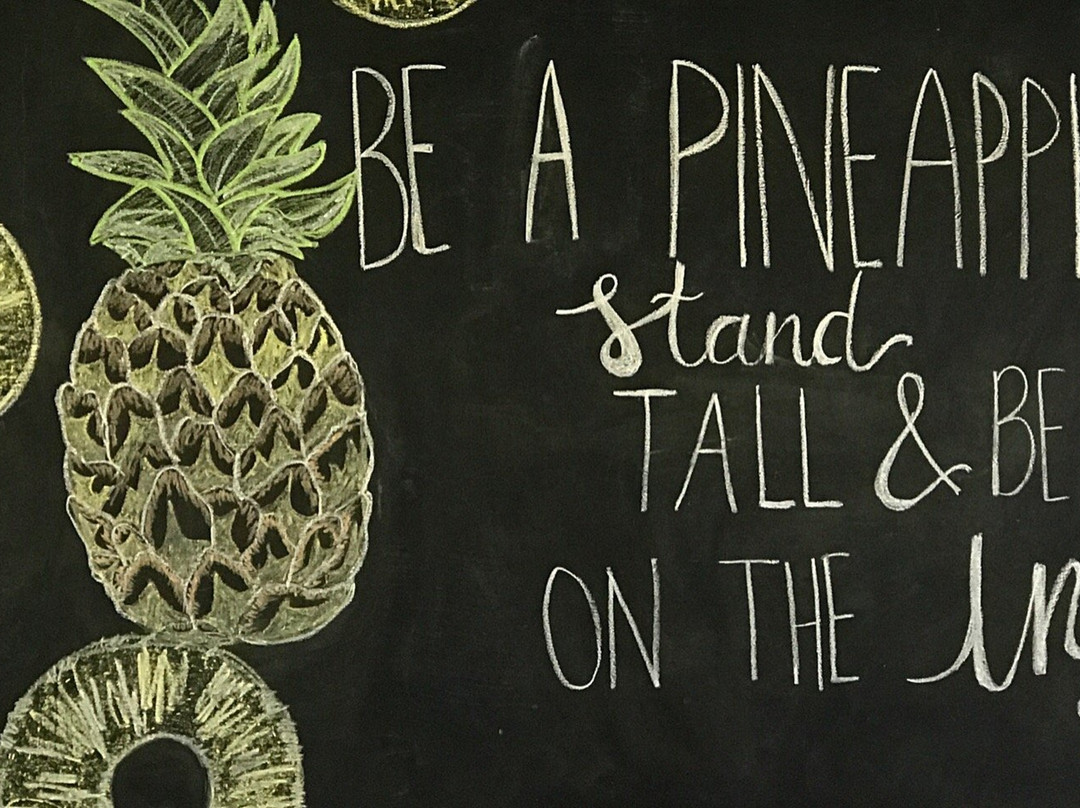 BE A PINEAPPL
stand
TALL & BE
ON THE in